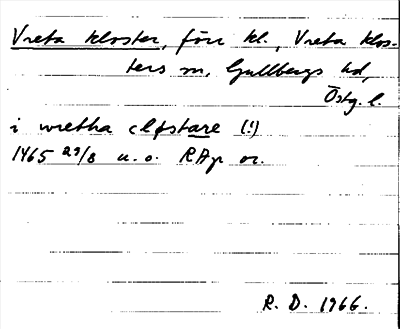 Vreta kloster, förr kl., Vreta klos-
ters sn, Gullbergs hd,
Östg. l.
i wretha cløstare (!)
1465 29/8 u. o. RAp or.
R. D. 1966.